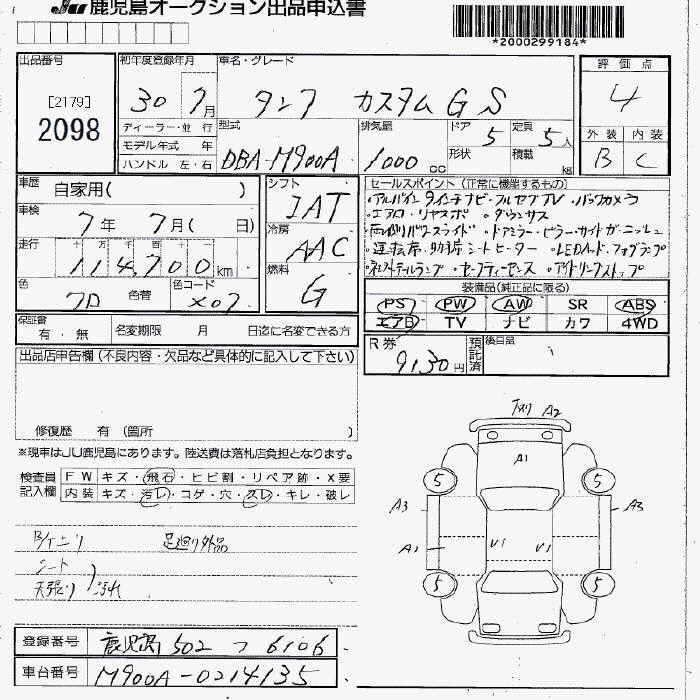 JU 鹿児島オークション出品申込書
*2000299184*
出品番号
[2179]
2098
初年度登録年月
30 7月
車名・グレード
タンク カスタム GS
評価点
4
外装 内装
B C
ディーラー・並行
モデル年式 年
ハンドル 左・右
型式
DBA-M900A
排気量
1000 cc
ドア 5
形状
定員 5人
積載 kg
車歴 自家用( )
車検 7年 7月( 日)
走行 十 万 千 百 十
114,700km
色 色替
色コード
X07
シフト
IAT
冷房
AAC
燃料
G
セールスポイント (正常に機能するもの)
・アルパイン 9インチナビ・フルセグTV・バックカメラ
・エアロ・リヤスポ ・ダウンサス
・両側パワースライド・ドアミラー・ピラー・サイドガーニッシュ
・運転席・助手席シートヒーター ・LEDヘッド・フォグランプ
・テールランプ ・セーフティーセンス ・アイドリングストップ
装備品(純正品に限る)
PS PW AW SR ABS
エアB TV ナビ カワ 4WD
保証書
有・無
名変期限 月 日迄に名変できる方
R券
9130円
預託済
後日品
出品店申告欄(不良内容・欠品など具体的に記入して下さい)
修復歴 有(箇所 )
※現車はJU鹿児島にあります。陸送費は落札店負担となります。
検査員
記入欄
FW キズ・飛石・ヒビ割・リペア跡・X要
内装 キズ・汚レ・コゲ・穴・スレ・キレ・破レ
足廻り外品
シート
天張り 汚れ
A2
A1
5 5
A3 A3
A1 U1 U1
5 5
登録番号 鹿児島 502 つ 6106
車台番号 M900A-0214135